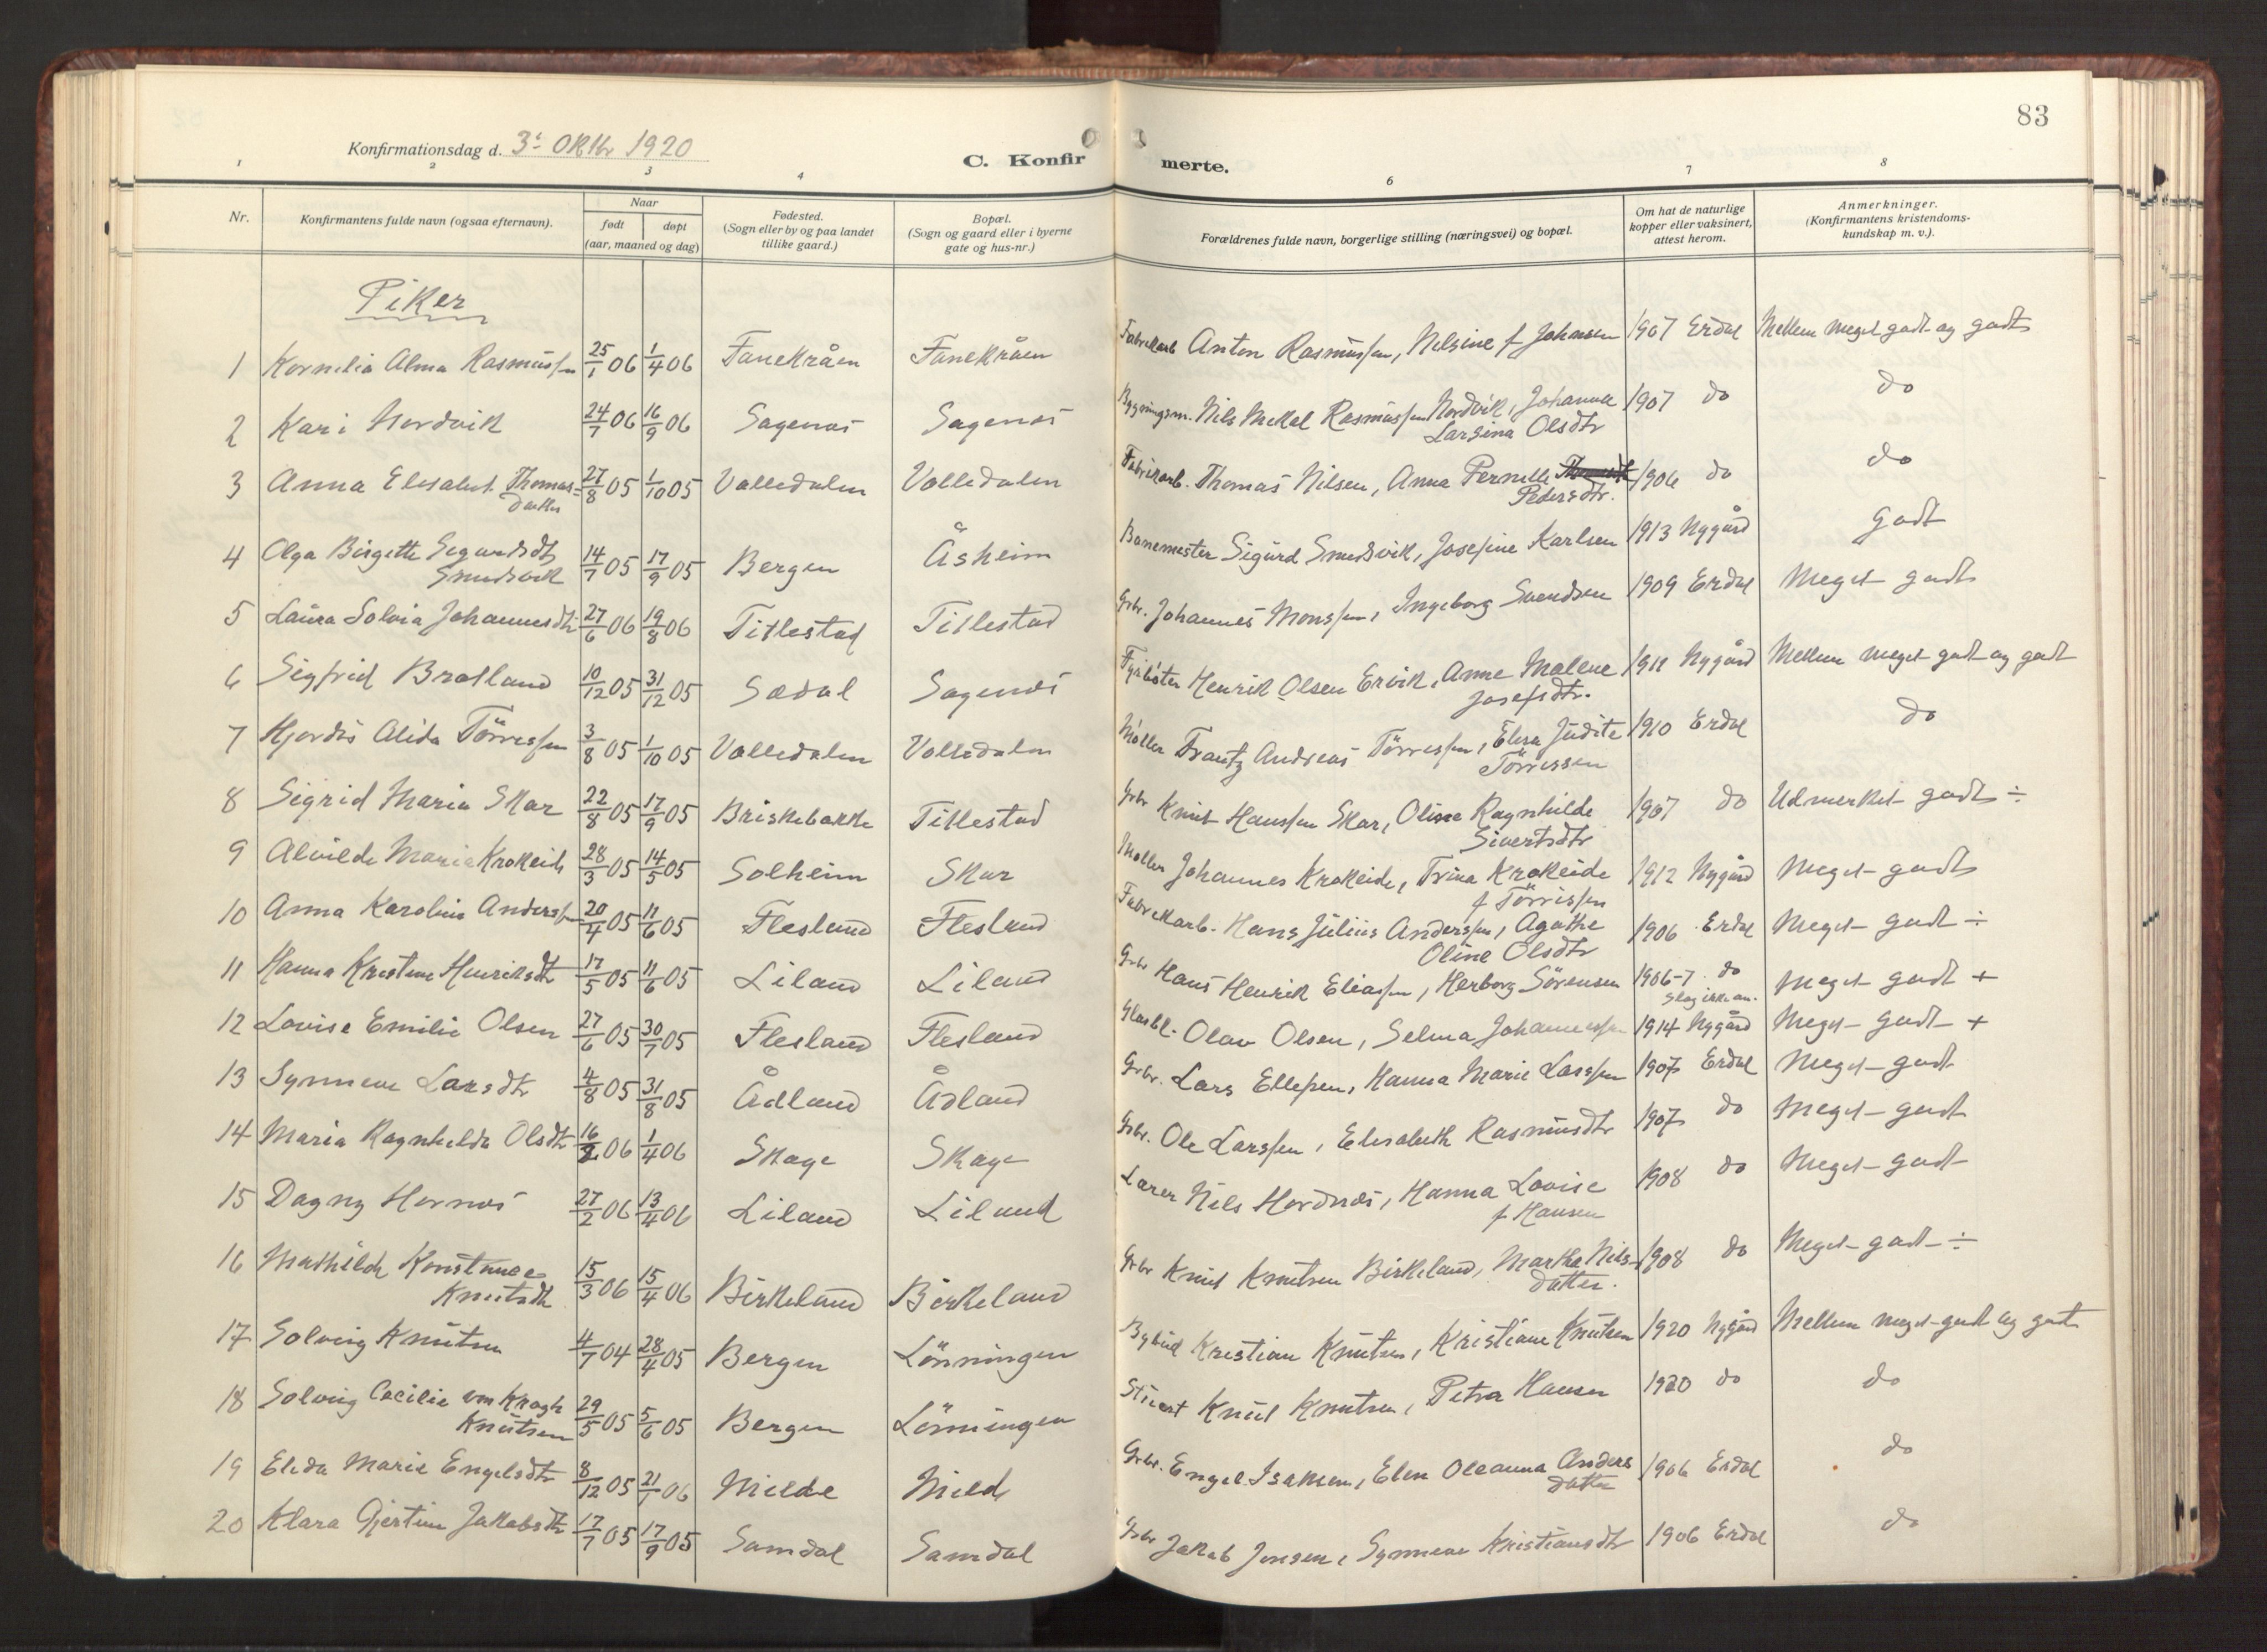 83
Konfirmationsdag d. 3. Oktbr 1920
C. Konfirmerte.
1 2 3 4 6 7 8
Nr. Konfirmantens fulde navn (ogsaa efternavn). Naar født døpt (aar, maaned og dag) Fødested. (Sogn eller by og paa landet tillike gaard.) Bopæl. (Sogn og gaard eller i byerne gate og hus-nr.) Forældrenes fulde navn, borgerlige stilling (næringsvei) og bopæl. Om hat de naturlige kopper eller vaksinert, attest herom. Anmerkninger. (Konfirmantens kristendomskundskap m. v.).
Piker
1 Kornelia Alma Rasmussen 25/1 06 1/4 06 Fanekråen Fanekråen Fabrikarb Anton Rasmussen, Nelsine f Johansen 1907 Erdal Mellem meget godt og godt
2 Kari Nordvik 24/7 06 16/9 06 Sagenes Sagenes Bygningsm. Nils Mikal Rasmussen Nordvik, Johanna Larsina Olsdtr 1907 do do
3 Anna Elisabet Thomasdatter 27/8 05 1/10 05 Valledalen Valledalen Fabrikarb. Thomas Nilsen, Anna Pernille Pedersdtr. 1906 do do
4 Olga Birgitte Sigurdsdtr Smedsvik 14/7 05 17/9 05 Bergen Åsheim Banemester Sigurd Smedsvik, Josefine Karlsen 1913 Nygård Godt
5 Laura Solvia Johannesdtr 27/6 06 19/8 06 Titlestad Titlestad Gbr. Johannes Monssen, Ingeborg Svendsen 1909 Erdal Meget godt
6 Sigfrid Bratland 10/12 05 31/12 05 Sædal Sagenes Fyrbøter Henrik Olsen Ervik, Anne Malene Josefsdtr. 1911 Nygård Mellem meget godt og godt
7 Hjordis Alida Törressen 3/8 05 1/10 05 Valledalen Valledalen Møller Frantz Andreas Törressen, Elisa Judite Törressen 1910 Erdal do
8 Sigrid Maria Skar 22/8 05 17/9 05 Briskebakke Titlestad Gbr Knut Hanssen Skar, Oline Ragnhilde Sivertsdtr 1907 do Udmerket godt ÷
9 Alvilde Maria Krokeide 28/3 05 14/5 05 Solheim Skar Møller Johannes Krokeide, Trina Krokeide f Törrissen 1912 Nygård Meget godt
10 Anna Karoline Anderssen 20/4 05 11/6 05 Flesland Flesland Fabrikarb. Hans Julius Anderssen, Agathe Oline Olsdtr 1906 Erdal Meget godt ÷
11 Hanna Kristine Henriksdtr 17/5 05 11/6 05 Liland Liland Gbr Hans Henrik Eliassen, Herborg Sörensen 1906-7 do slog ikke an. Meget godt +
12 Lovise Emilie Olsen 27/6 05 30/7 05 Flesland Flesland Glasbl. Olav Olsen, Selma Johannessen 1914 Nygård Meget godt +
13 Synneve Larsdtr 4/8 05 31/8 05 Ådland Ådland Gbr. Lars Ellefsen, Hanna Marie Larssen 1907 Erdal Meget godt
14 Maria Ragnhilda Olsdtr 16/2 06 1/4 06 Skage Skage Gbr. Ole Larssen, Elisabeth Rasmusdtr 1907 do Meget godt
15 Dagny Hornnes 27/2 06 13/4 06 Liland Liland Lærer Nils Hordnes, Hanna Lovise f Hansen 1908 do Meget godt
16 Mathilde Konstance Knutsdtr 15/3 06 15/4 06 Birkeland Birkeland Gbr Knut Knutsen Birkeland, Martha Nilsdatter. 1908 do Meget godt ÷
17 Solveig Knutsen 4/7 04 28/4 05 Bergen Lönningen Bybud Kristian Knutsen, Kristiane Knutsen 1920 Nygård Mellem meget godt og godt
18 Solveig Cecilie von Krogh Knutsen 29/5 05 5/6 05 Bergen Lönningen Stuert Knut Knutsen, Petra Hansen 1920 do do
19 Elida Marie Engelsdtr 8/12 05 21/1 06 Milde Milde Gbr. Engel Isaksen, Elen Oleanna Andersdatter 1906 Erdal do
20 Klara Gjertine Jakobsdtr 17/7 05 17/9 05 Samdal Samdal Gbr Jakob Jensen, Synneve Kristiansdtr 1906 Erdal do